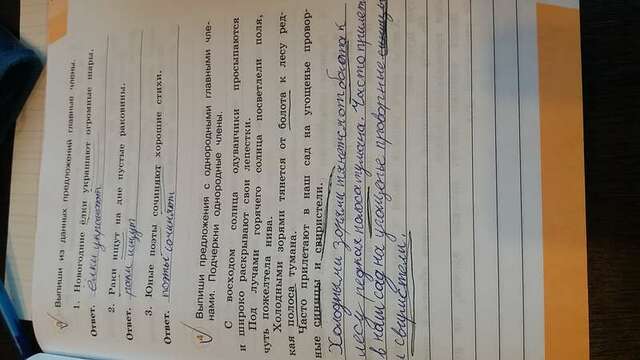 3 Выпиши из данных предложений главные члены.
1. Новогодние ёлки украшают огромные шары.
Ответ. ёлки украшают
2. Раки ищут на дне пустые раковины.
Ответ. раки ищут
3. Юные поэты сочиняют хорошие стихи.
Ответ. поэты сочиняют
4 Выпиши предложения с однородными главными чле-
нами. Подчеркни однородные члены.
С восходом солнца одуванчики просыпаются
и широко раскрывают свои лепестки.
Под лучами горячего солнца посветлели поля,
чуть пожелтела нива.
Холодными зорями тянется от болота к лесу ред-
кая полоса тумана.
Часто прилетают в наш сад на угощенье провор-
ные синицы и свиристели.
Холодными зорями тянется от болота к
лесу редкая полоса тумана. Часто прилет
в наш сад на угощенье проворные синицы
и свиристели.